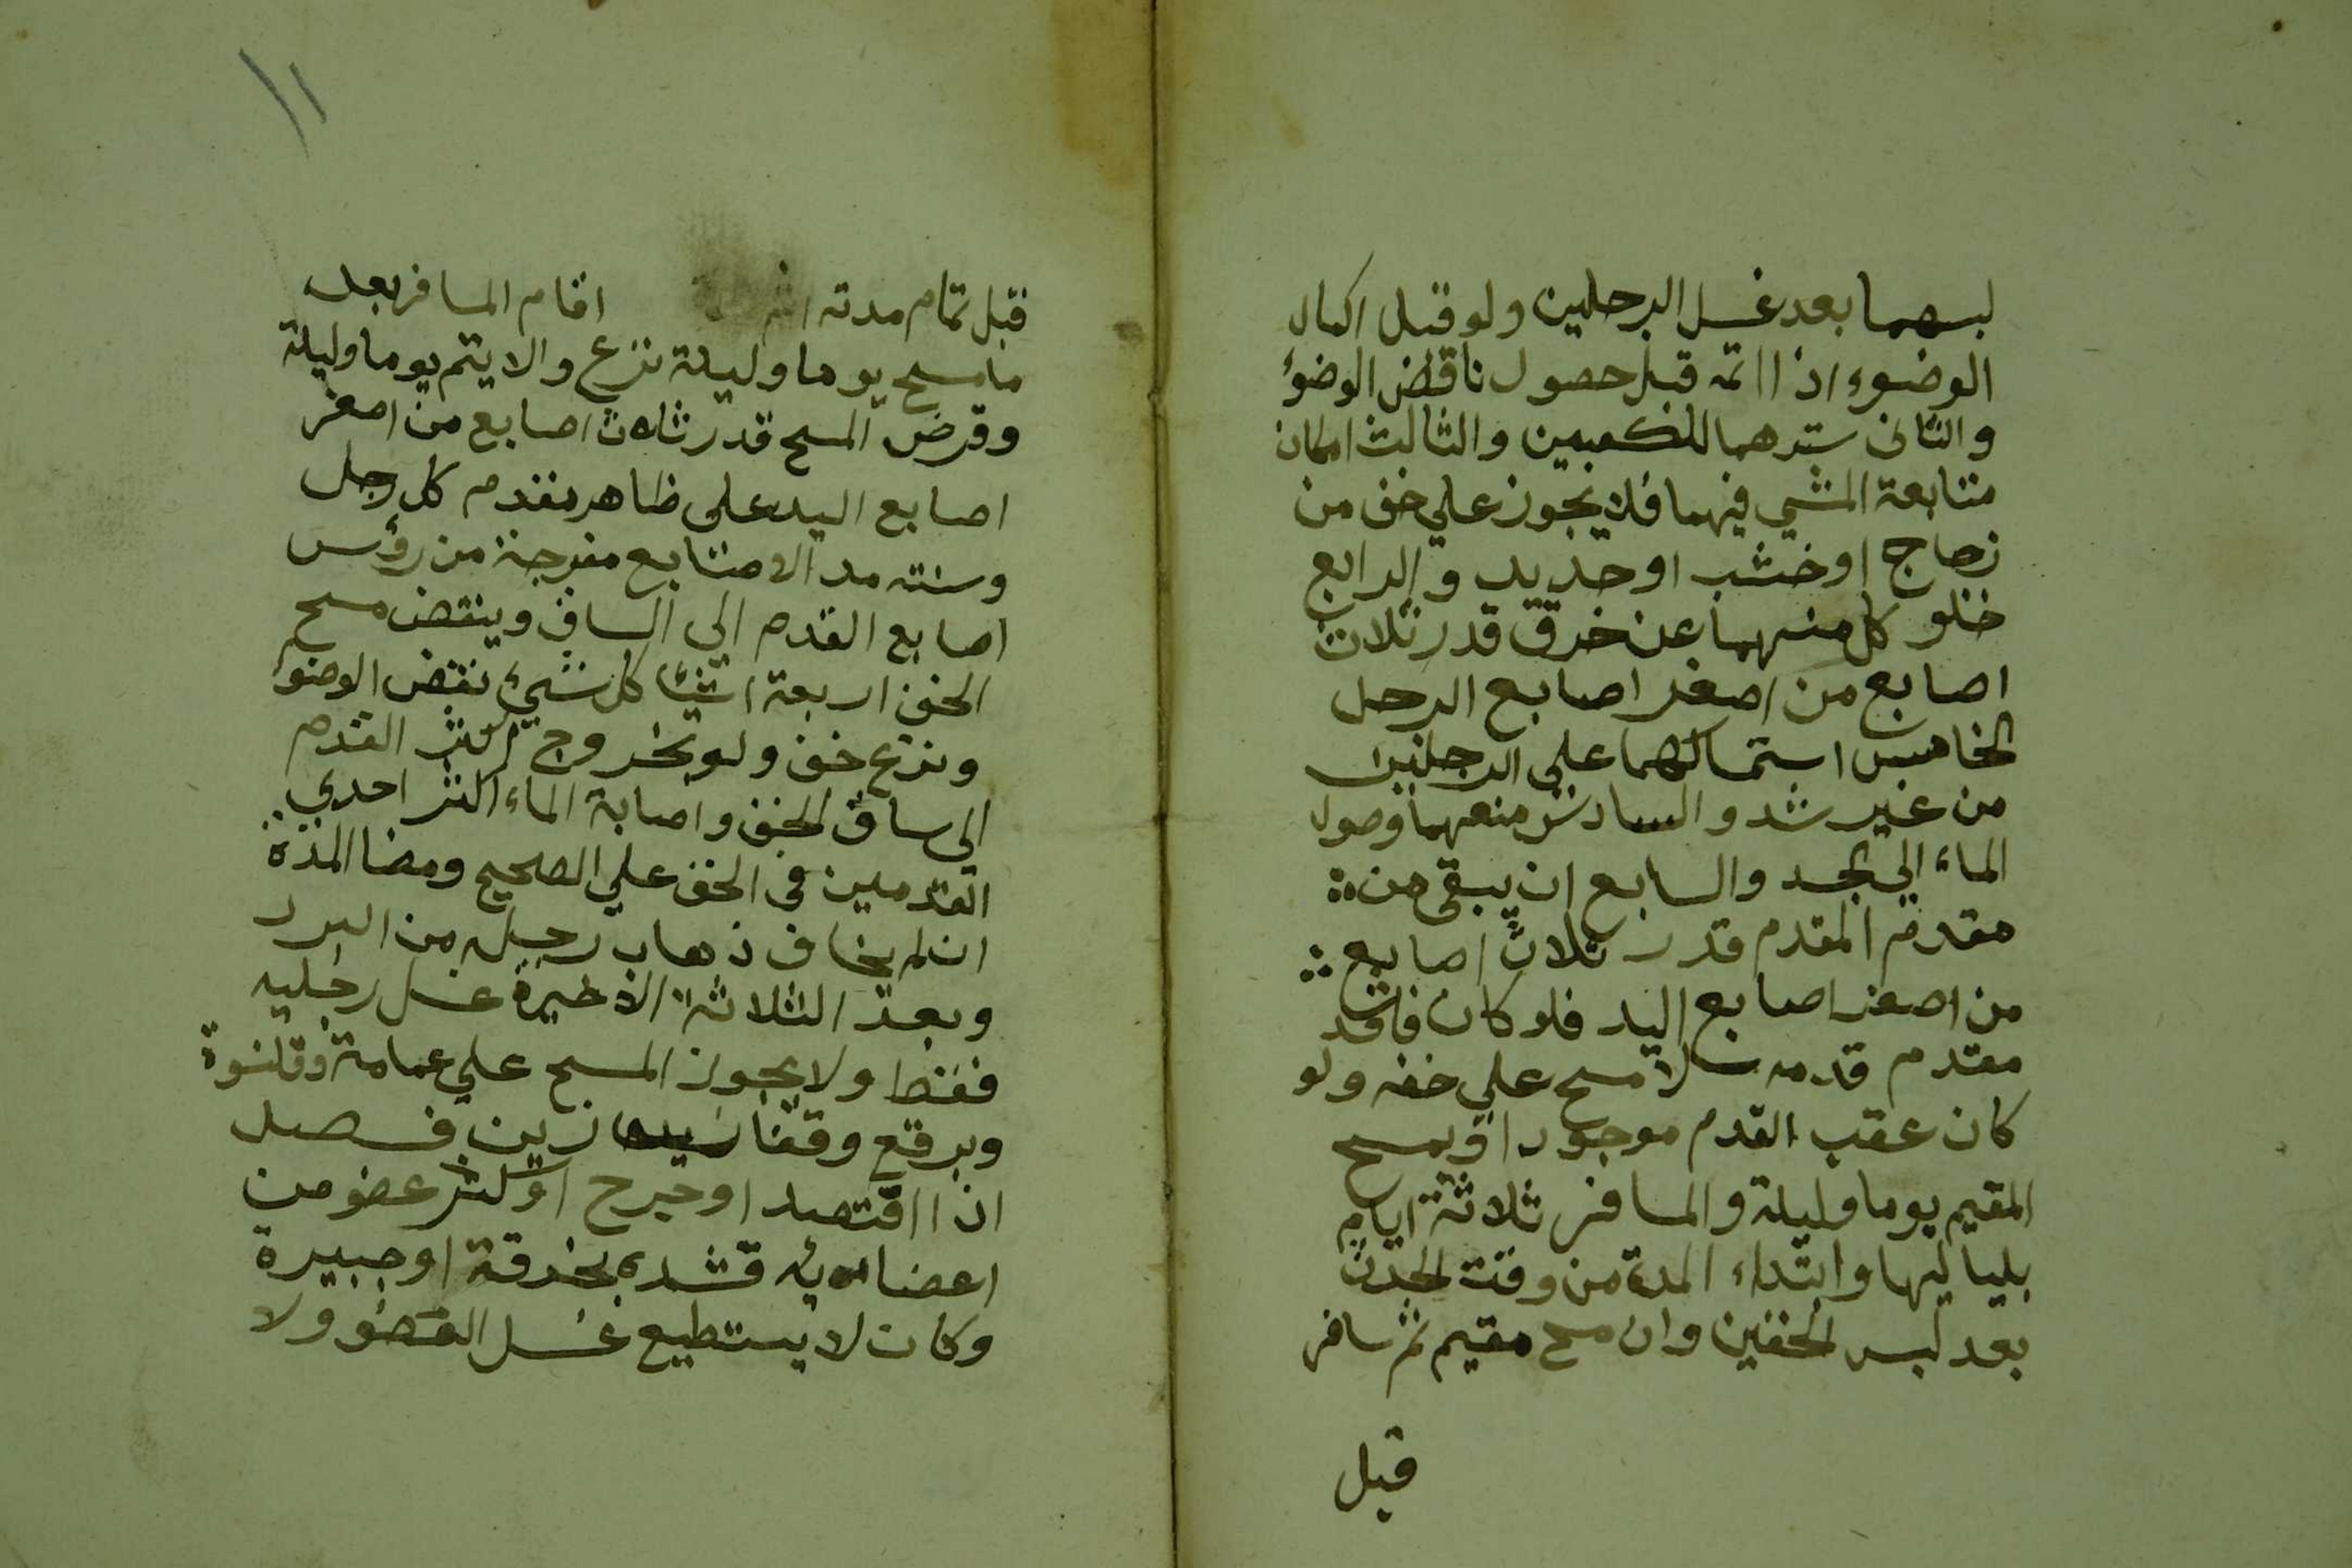 لبسهما بعد غسل الرجلين ولو قبل اكمال
الوضوء اذا اتمه قبل حصول ناقض الوضوء
والثانى سترهما للكعبين والثالث امكان
متابعة المشي فيهما فلا يجوز علي خف من
زجاج او خشب او حديد والرابع
خلو كل منهما عن خرق قدر ثلاث
اصابع من اصغر اصابع الرجل
الخامس استمساكهما على الرجلين
من غير شد والسادس منعهما وصول
الماء الي الجسد والسابع ان يبقى من
مقدم المقدم قدر ثلاث اصابع
من اصغر اصابع اليد فلو كان فاقد
مقدم قدمه لا مسح علي خفه ولو
كان عقب القدم موجودا ويمسح
المقيم يوما وليلة والمسافر ثلاثة ايام
بلياليها وابتداء المدة من وقت الحدث
بعد لبس الخفين وان مسح مقيم ثم سافر
قبل
١١
قبل تمام مدته اقام المسافر بعد
ما مسح يوما وليلة نزع والا يتم يوما وليلة
وفرض المسح قدر ثلاث اصابع من اصغر
اصابع اليد على ظاهر مقدم كل رجل
وسنته مد الاصابع مفرجة من رؤس
اصابع القدم الي الساق وينقض مسح
الخف اربعة اشيا كل شيئ نقض الوضوء
ونزع خف ولو بخروج اكثر القدم
الي ساق الخف واصابة الماء اكثر احدي
القدمين في الخف علي الصحيح ومضا المدة
ان لم يخاف ذهاب رجله من البرد
وبعد الثلاثة الاخيرة غسل رجليه
فقط ولا يجوز المسح علي عمامة وقلنسوة
وبرقع وقفازين فصل
اذا افتصد او جرح او كسر عضو من
اعضائه فشده بخرقة او جبيرة
وكان لا يستطيع غسل العضو ولا